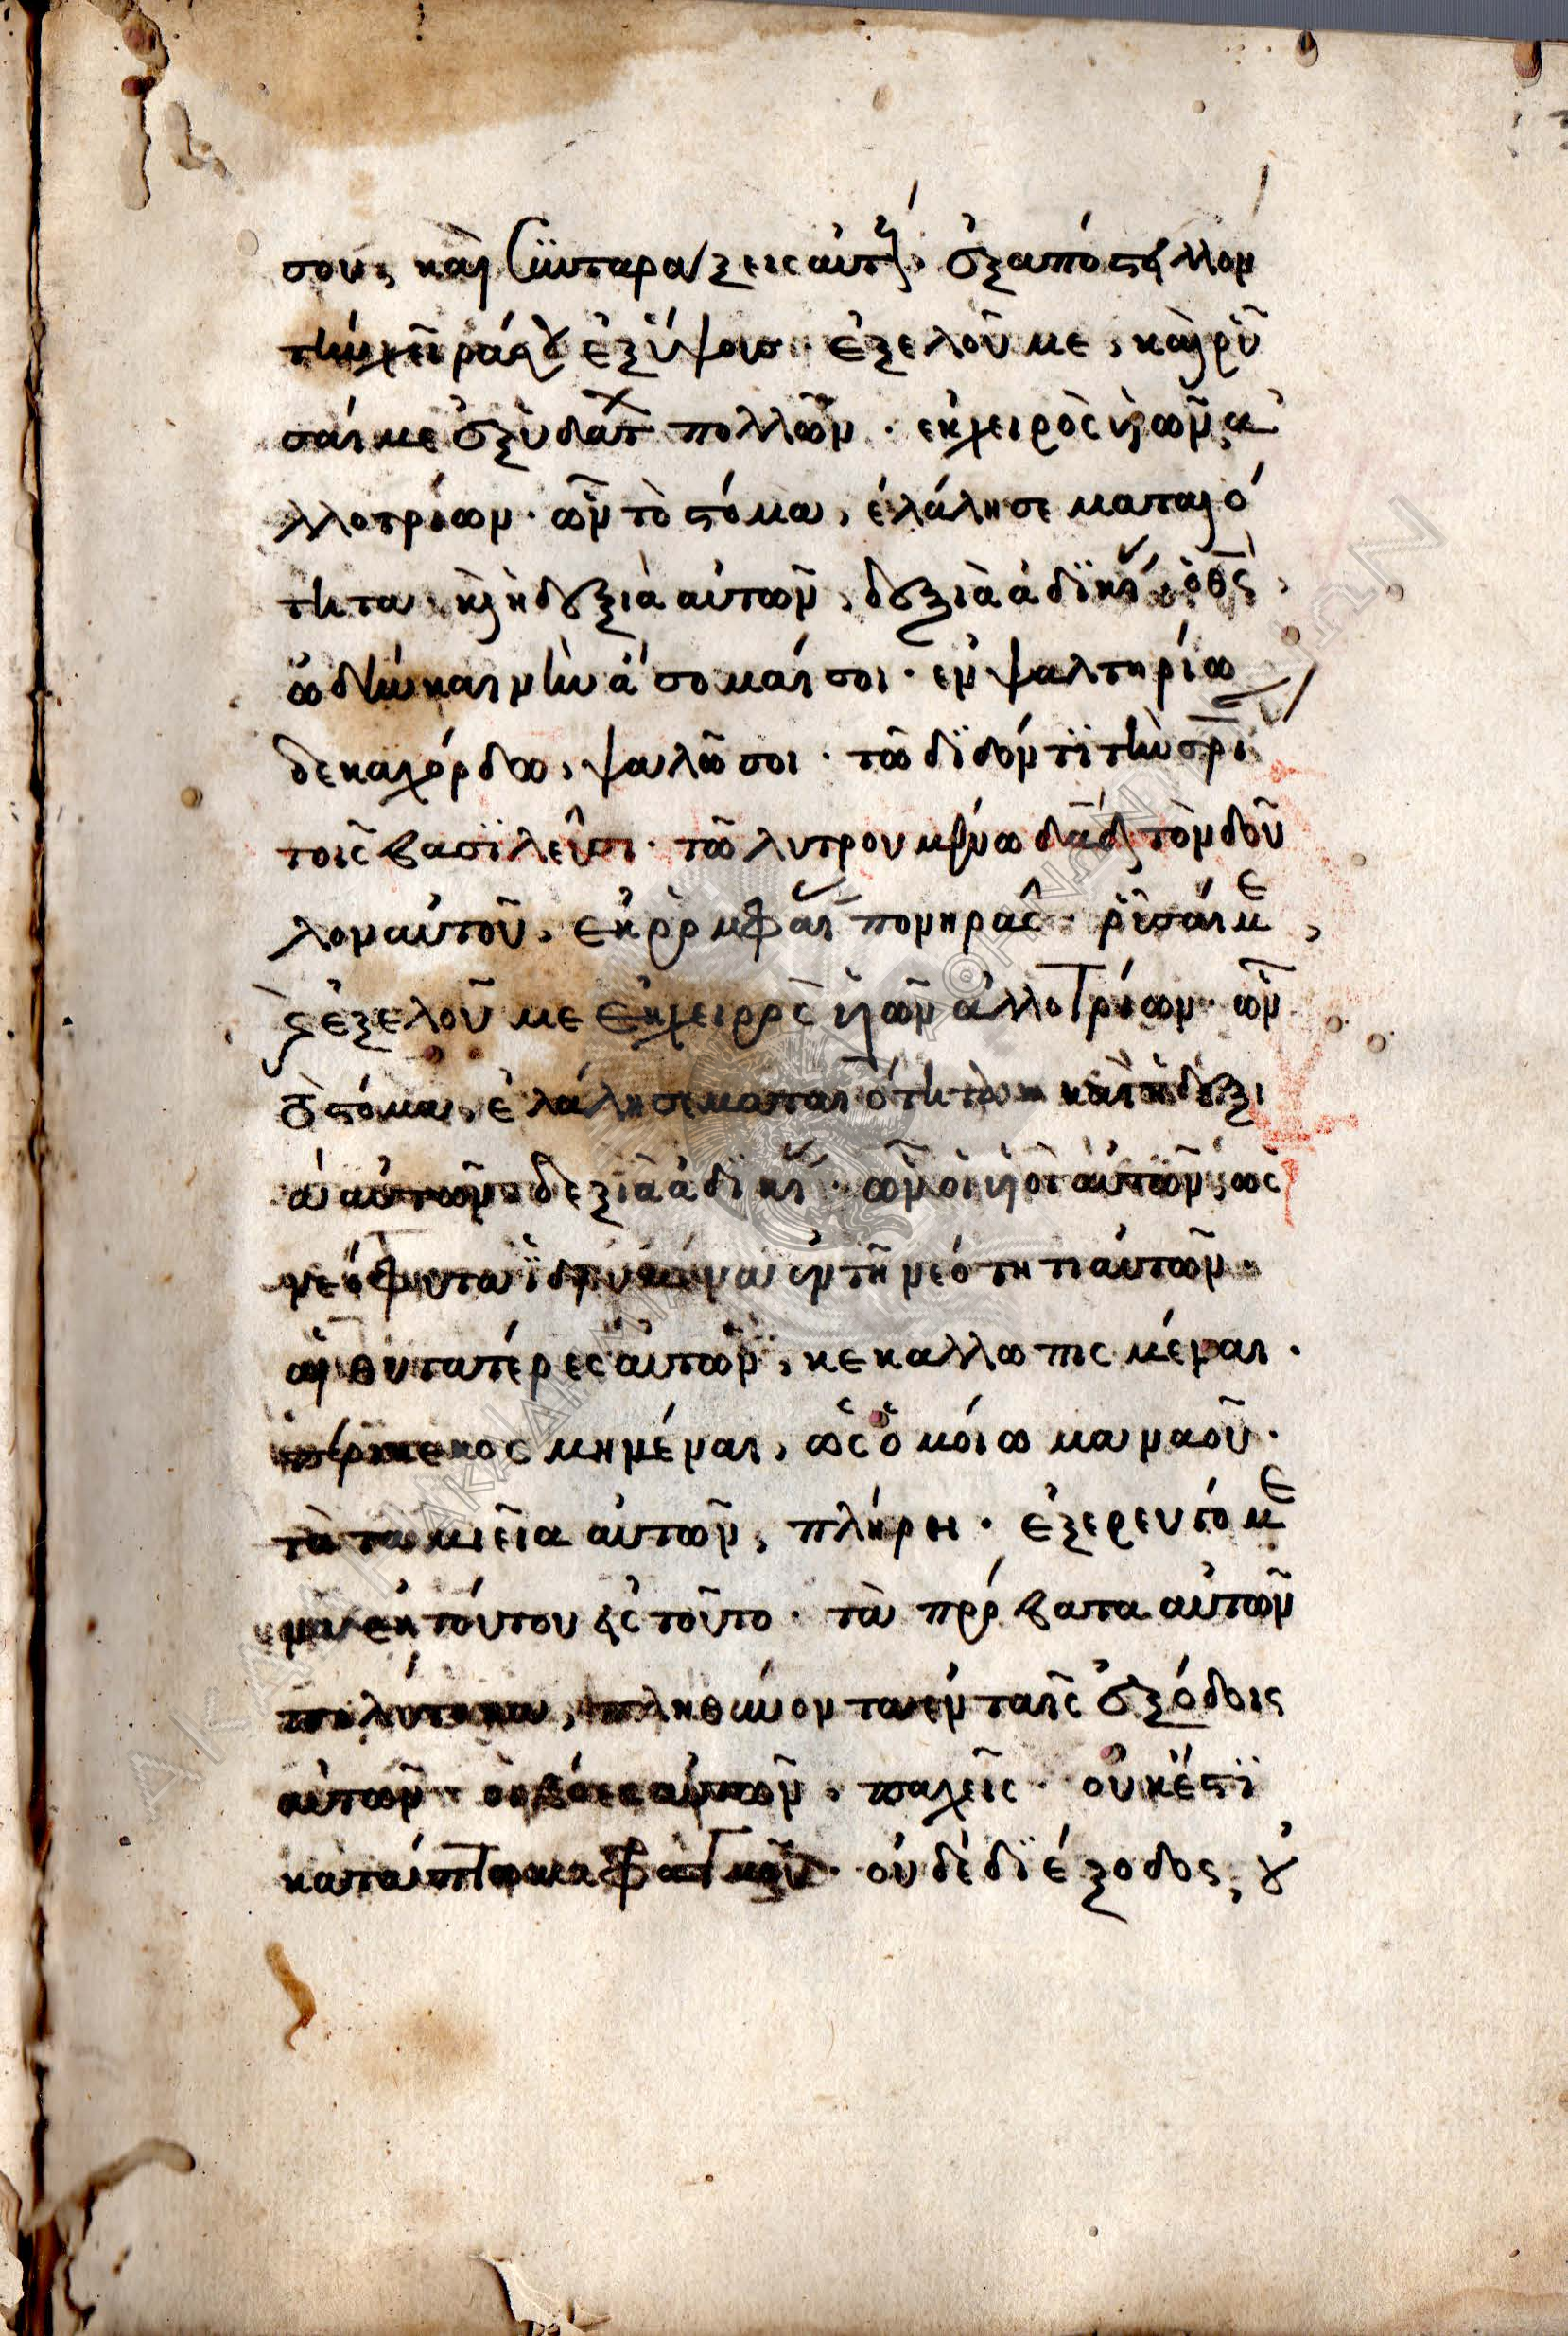 σου, καὶ συνταράξεις αὐτούς· ἐξαπόστειλον
τὴν χεῖρά σου ἐξ ὕψους· ἐξελοῦ με, καὶ ρῦ
σαί με ἐξ ὑδάτων πολλῶν· ἐκ χειρὸς υἱῶν ἀ
λλοτρίων· ὧν τὸ στόμα, ἐλάλησε ματαιό
τητα, κ(αὶ) ἡ δεξιὰ αὐτῶν, δεξιὰ ἀδϊκίας· ὁ θς,
ὠδὴν καινὴν ἄσομαί σοι· ἐν ψαλτηρίω
δεκαχόρδω, ψαλῶ σοι· τῶ δϊδόντϊ τὴν σρι
τοῖς βασϊλεῦσι· τῶ λυτρουμένω δαδ τὸν δοῦ
λον αὐτοῦ, ἐκ ρομφαίας πονηρᾶς· ρῦσαί με,
κ(αὶ) ἐξελοῦ με ἐκ χειρὸς υἱῶν ἀλλοτρίων· ὧν
τὸ στόμα, ἐλάλησε ματαιότητα καὶ ἡ δεξι
ὰ αὐτῶν δεξιὰ ἀδϊκίας· ὧν οἱ υἱοὶ αὐτῶν, ὡς
νεόφυτα ἱδρυμένα ἐν τῆ νεότητι αὐτῶν·
αἱ θυγατέρες αὐτῶν, κεκαλλωπισμέναι·
περικεκοσμημέναι, ὡς ὁμοίωμα ναοῦ·
τὰ ταμιεῖα αὐτῶν, πλήρη· ἐξερευγόμε
να ἐκ τούτου εἰς τοῦτο· τὰ πρόβατα αὐτῶν
πολύτοκα, πληθύνοντα ἐν ταῖς ἐξόδοις
αὐτῶν· οἱ βόες αὐτῶν, παχεῖς· οὐκ ἔστϊ
κατάπτωμα φραγμοῦ· οὐδὲ δϊέξοδος, οὐ